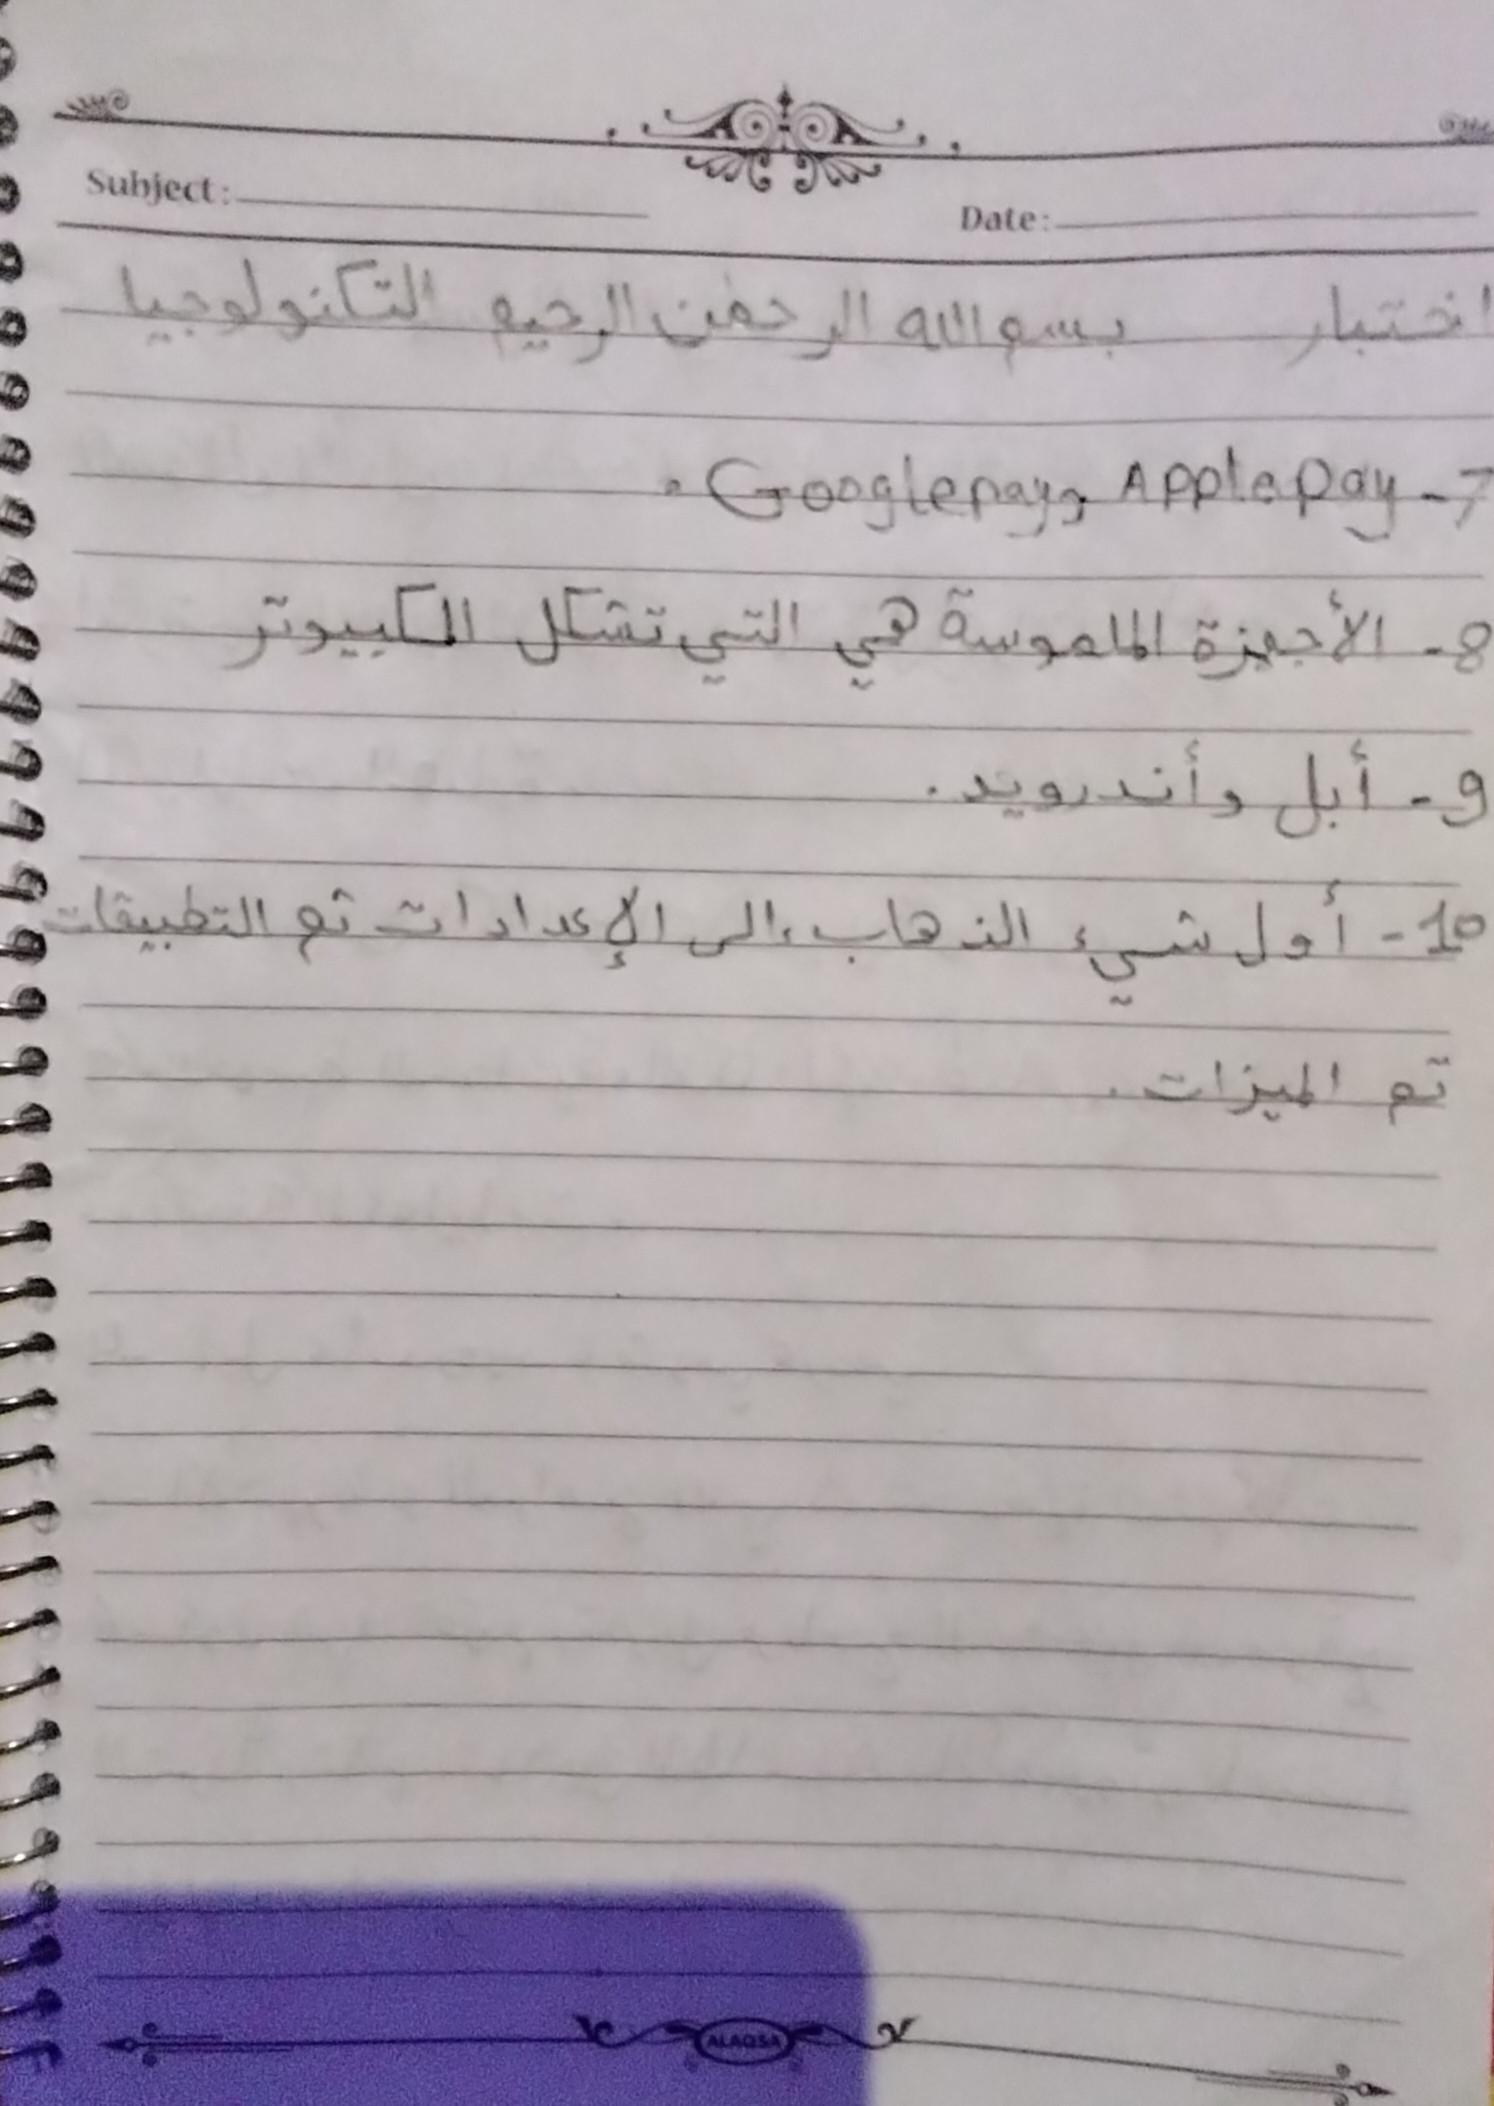 Subject:
Date:
اختبار بسم الله الرحمن الرحيم التكنولوجيا
7- Apple Pay و Google pay.
8- الأجهزة الملموسة هي التي تشكل الكبيوتر
9- أبل وأندرويد.
10- أول شيء الذهاب إلى الإعدادات ثم التطبيقات
ثم الميزات.
ALAQSA